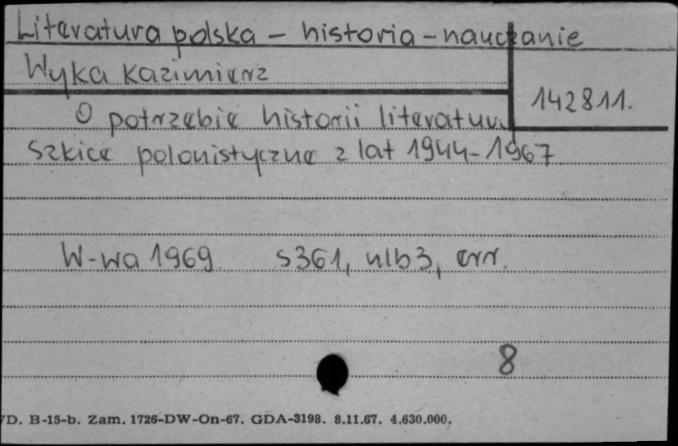 Literatura polska - historia - nauczanie
Wyka Kazimierz
142811.
O potrzebie historii literatury
Szkice polonistyczne z lat 1944-1967
W-wa 1969 s361, nlb3, err.
8
/D. B-15-b. Zam. 1726-DW-On-67. GDA-3198. 8.11.67. 4.630.000.